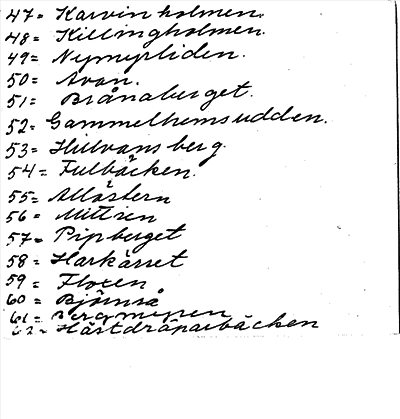 47= Karvinholmen.
48= Killingholmen.
49= Nymyrliden.
50= Avan.
51= Brånaberget.
52= Gammelhemsudden.
53= Hillvansberg.
54= Fulbäcken.
55= Allåstern
56= Mittien
57= Pipberget
58= Harkärret
59= Floxen
60= Björnså
61= Bergmyren
62= Hästdråparbäcken